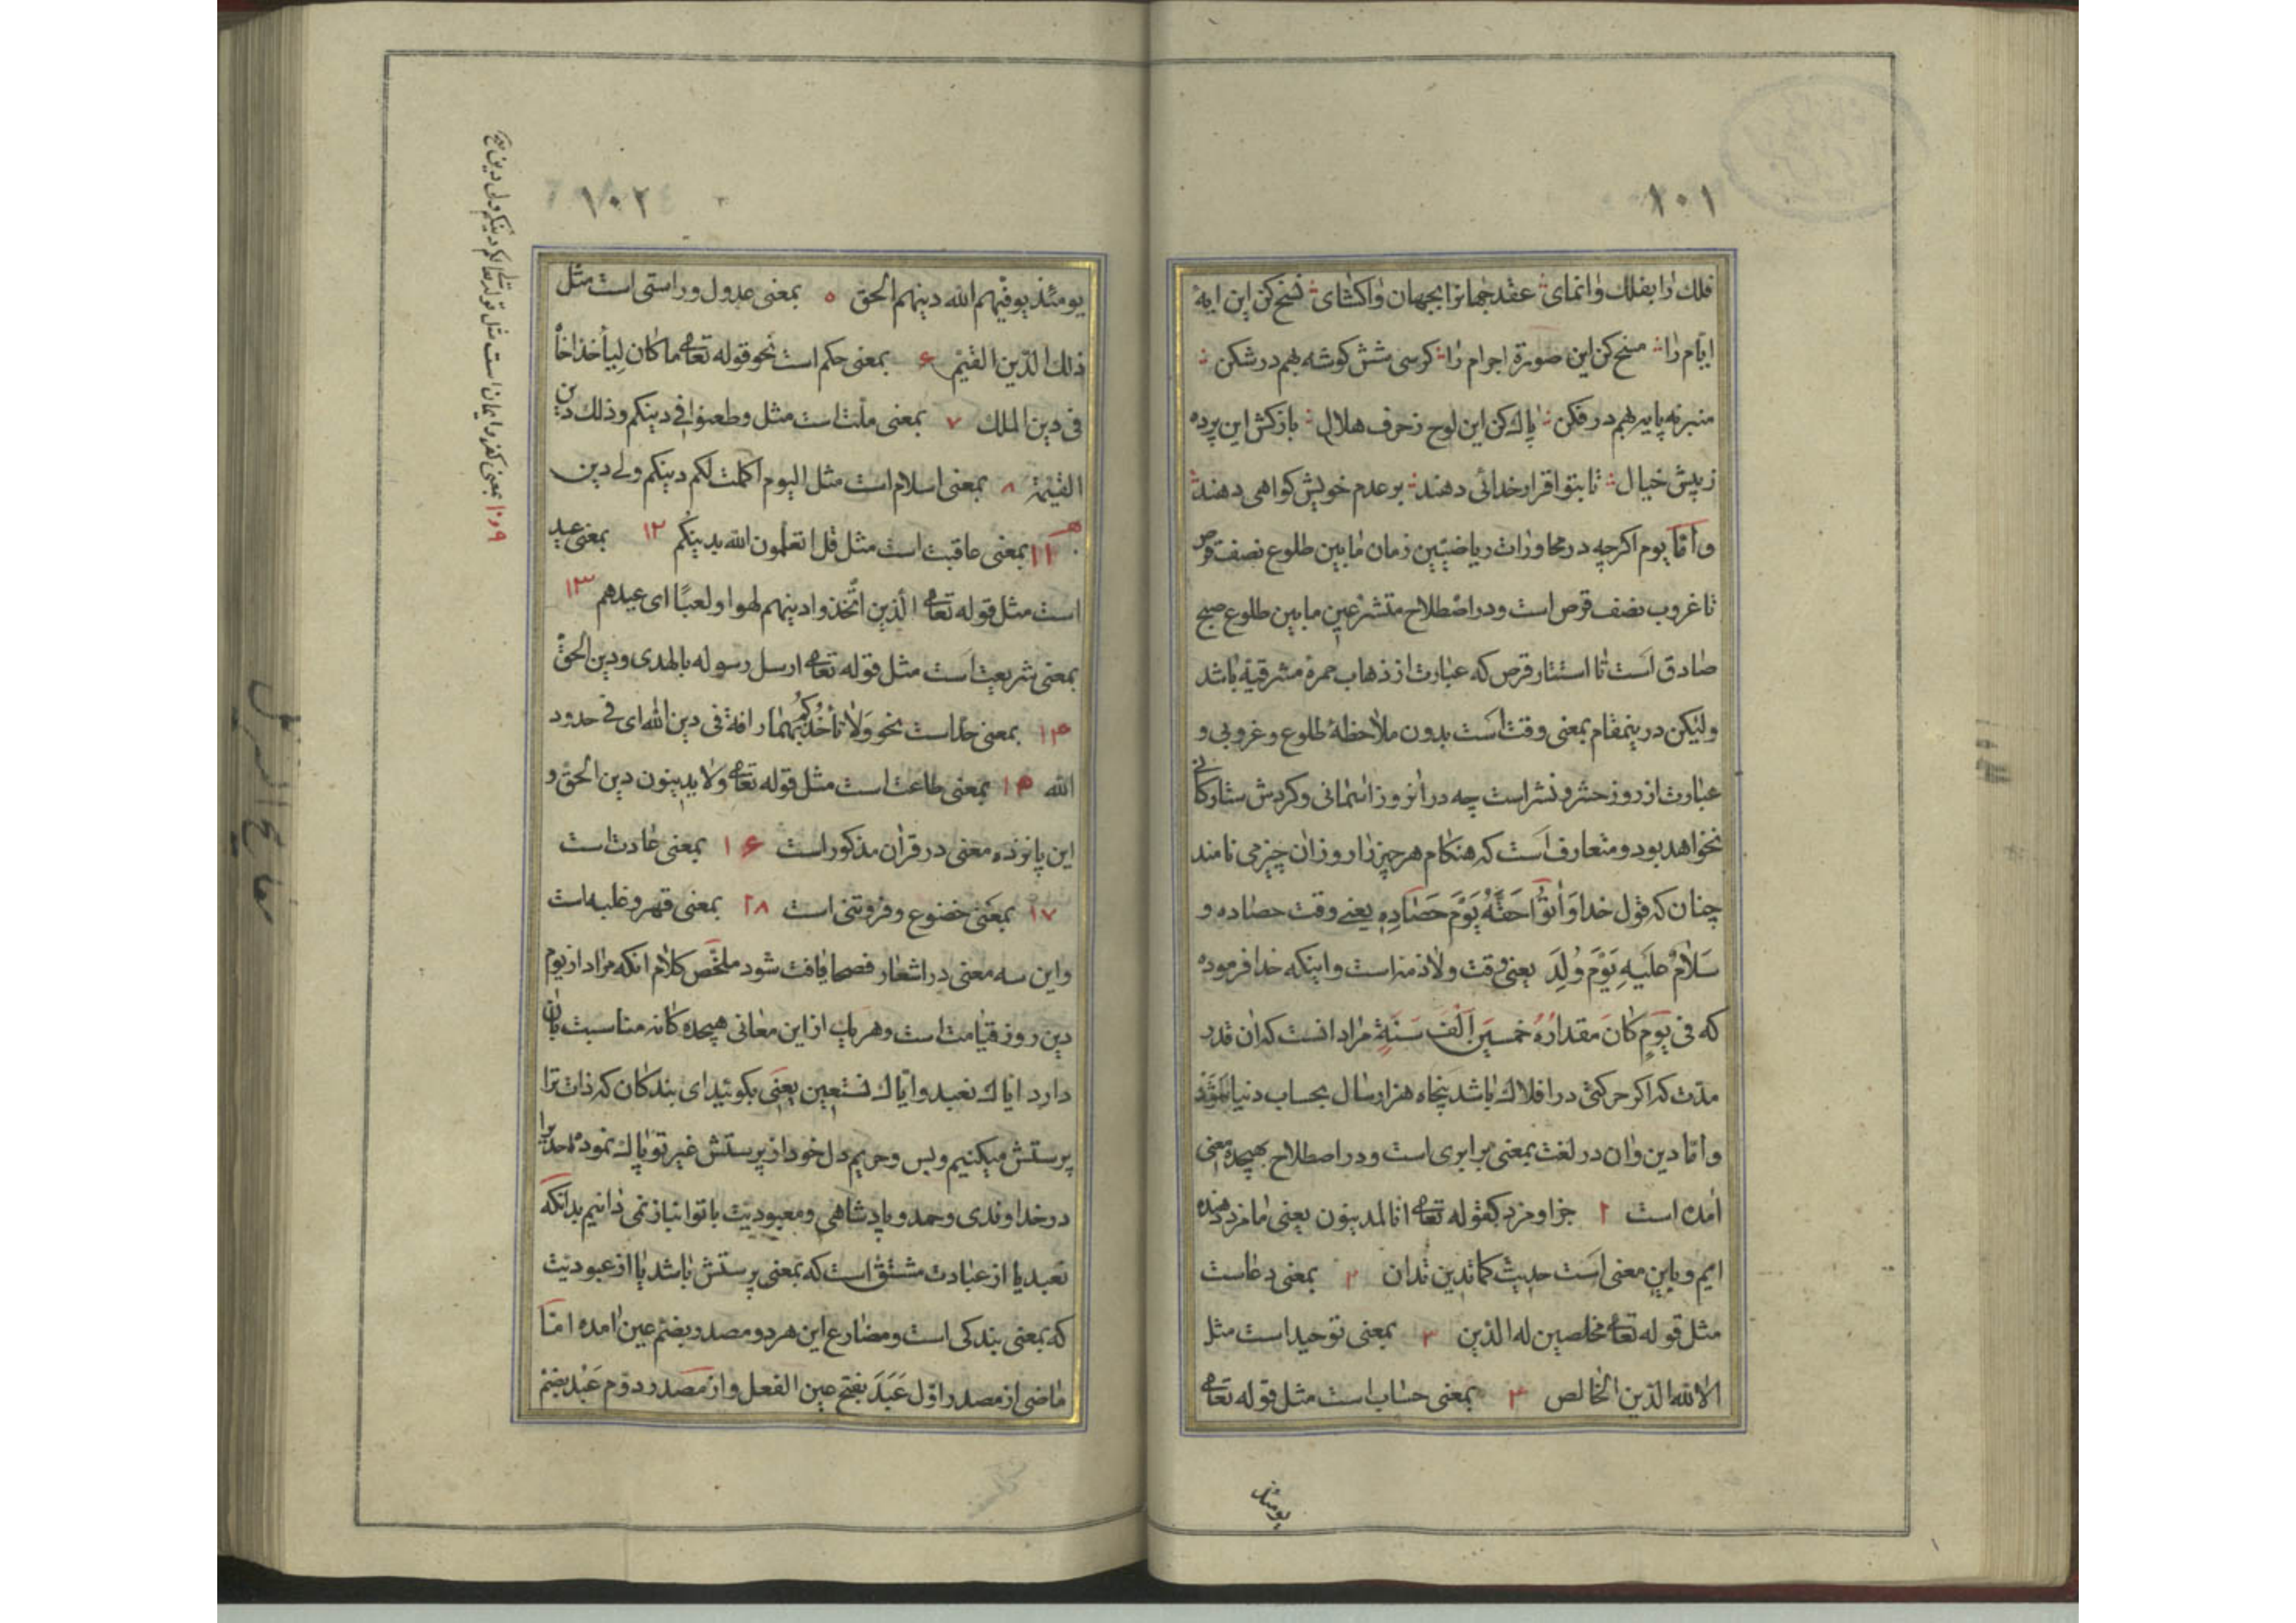 ١٠١
فلك را بفلك وانمای عقد جهانرا بجهان واکشای نسخ کن این ایهٔ
ایام را مسخ کن این صورة اجرام را کرسی شش کوشه بهم در شکن
منبر نه پایه بهم در فکن پاك کن این لوح ز حرف هلال بازکش این پرده
ز پیش خیال تا بتو اقرار خدائی دهند بر عدم خویش کواهی دهند
و امّا یوم اکرچه در محاورات ریاضیّین زمان ما بین طلوع نصف قرص
تا غروب نصف قرص است و در اصطلاح متشرّعین ما بین طلوع صبح
صادق است تا استتار قرص که عبارت از ذهاب حمرهٔ مشرقیّه باشد
ولیکن درینمقام بمعنی وقت است بدون ملاحظهٔ طلوع و غروبی و
عبارت از روز حشر و نشر است چه در آنروز اسمانی و کردش ستارکانی
نخواهد بود و متعارف است که هنکام هر چیز را روز ان چیز می نامند
چنان که قول خدا وَاٰتُوا حَقَّهُ یَوْمَ حَصٰادِهِ یعنی وقت حصاده و
سَلاٰمٌ عَلَیْهِ یَوْمَ وُلِدَ یعنی وقت ولادته است و اینکه خدا فرموده
که فی یَوْمٍ کٰانَ مقدارُهُ خمسین اَلْفَ سَنَةٍ مراد انست که ان قدر
مدّت که اکر حرکتی در افلاك باشد پنجاه هزار سال بحساب دنیا
و امّا دین و ان در لغت بمعنی برابری است و در اصطلاح بهیجده معنی
آمده است ۱ جزا و مزد کقوله تعالی انّا لمدینون یعنی ما مزد دهنده
ایم و باین معنی است حدیث کما تدین تدان ۲ بمعنی دعاست
مثل قوله تعالی مخلصین له الدّین ۳ بمعنی توحید است مثل
الا لله الدّین الخالص ۴ بمعنی حساب است مثل قوله تعالی
یومئذ
١٠٢
یومئذ یوفّیهم الله دینهم الحق ۵ بمعنی عدول و راستی است مثل
ذلك الدّین القیّم ۶ بمعنی حکم است نحو قوله تعالی ما کان لِیأخذ اخاهُ
فی دین الملك ۷ بمعنی ملّت است مثل وطعنوا فی دینکم و ذلك دین
القیّمة ۸ بمعنی اسلام است مثل الیوم اکملت لکم دینکم ولی دین
۱۱ بمعنی عاقبت است مثل قل اتعلّمون الله بدینکم ۱۲ بمعنی عید
است مثل قوله تعالی الّذین اتّخذوا دینهم لهوا ولعبًا ای عیدهم ۱۳
بمعنی شریعت است مثل قوله تعالی ارسل رسوله بالهدی ودین الحقّ
۱۴ بمعنی حدّ است نحو وَلاٰ تأخُذْکُمْ بهما رافة فی دین الله ای فی حدود
الله ۱۵ بمعنی طاعت است مثل قوله تعالی ولا یدینون دین الحقّ و
این پانزده معنی در قرآن مذکور است ۱۶ بمعنی عادت است
۱۷ بمعنی خضوع و فروتنی است ۱۸ بمعنی قهر و غلبه است
و این سه معنی در اشعار فصحا یافت شود ملخّص کلام انکه مراد از یوم
دین روز قیامت است و هر یك از این معانی هیجده کانه مناسبت بان
دارد ایّاك نعبد وایّاك نستعین یعنی بکوئید ای بندکان که ذات ترا
پرستش میکنیم و بس و حریم دل خود از پرستش غیر تو پاك نموده احدیرا
در خداوندی و حمد و پادشاهی و معبودیّت با تو انباز نمی دانیم بدانکه
نعبد یا از عبادت مشتقّ است که بمعنی پرستش باشد یا از عبودیّت
که بمعنی بندکی است و مضارع این هر دو مصدر بضمّ عین آمده امّا
ماضی از مصدر اوّل عَبَدَ بفتح عین الفعل و از مصدر دوّم عَبُد بضمّ
۹و۱۰ بمعنی کفر و ایمان است مثل قوله تعالی لکم دینکم ولی دین